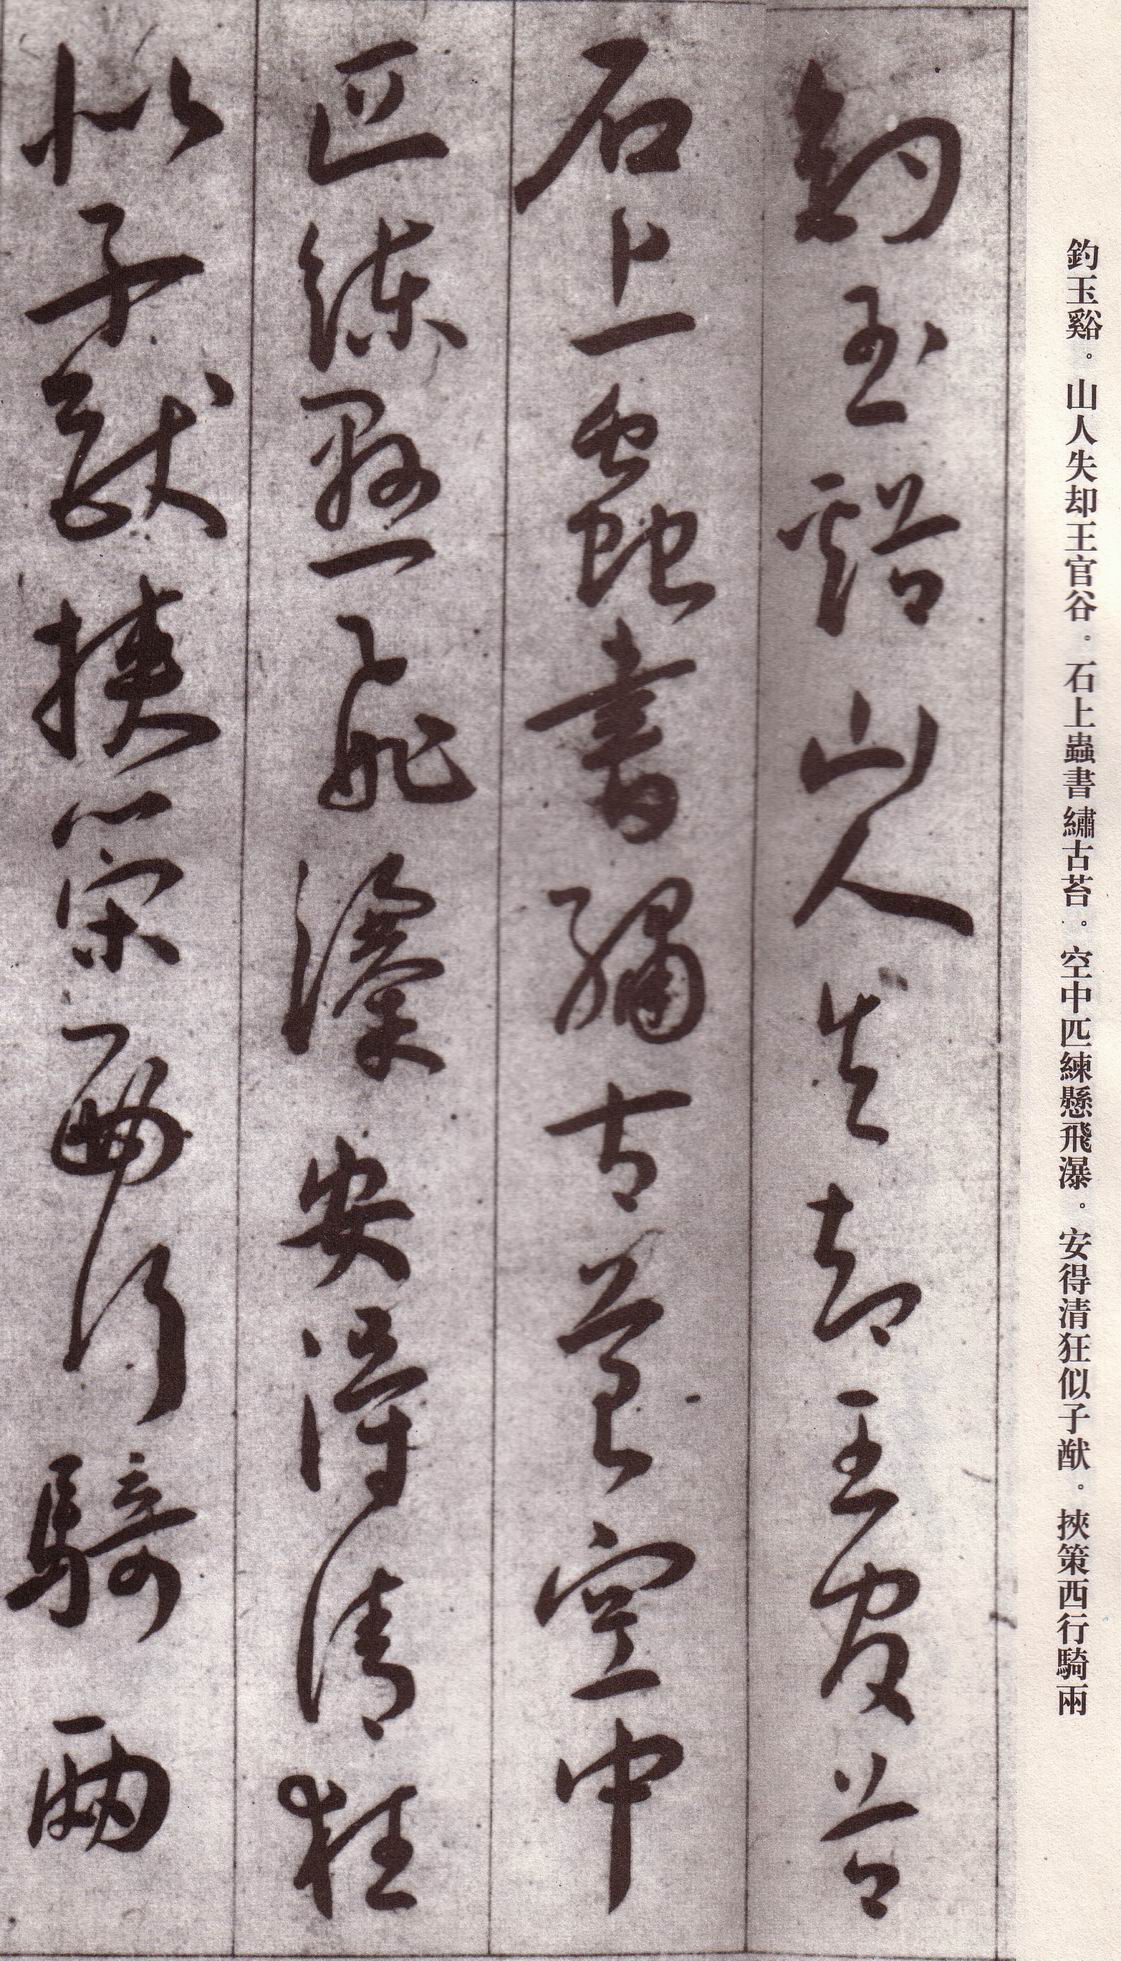 釣玉谿。山人失却王官谷。石上蟲書繡古苔。空中匹練懸飛瀑。安得清狂似子猷。挾策西行騎兩
釣玉谿山人失却王官谷
石上蟲書繡古苔空中
匹練懸飛瀑安得清狂
似子猷挾策西行騎兩